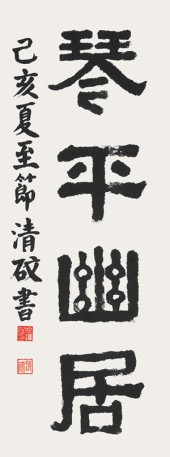 琴平幽居
己亥夏至節清砹書